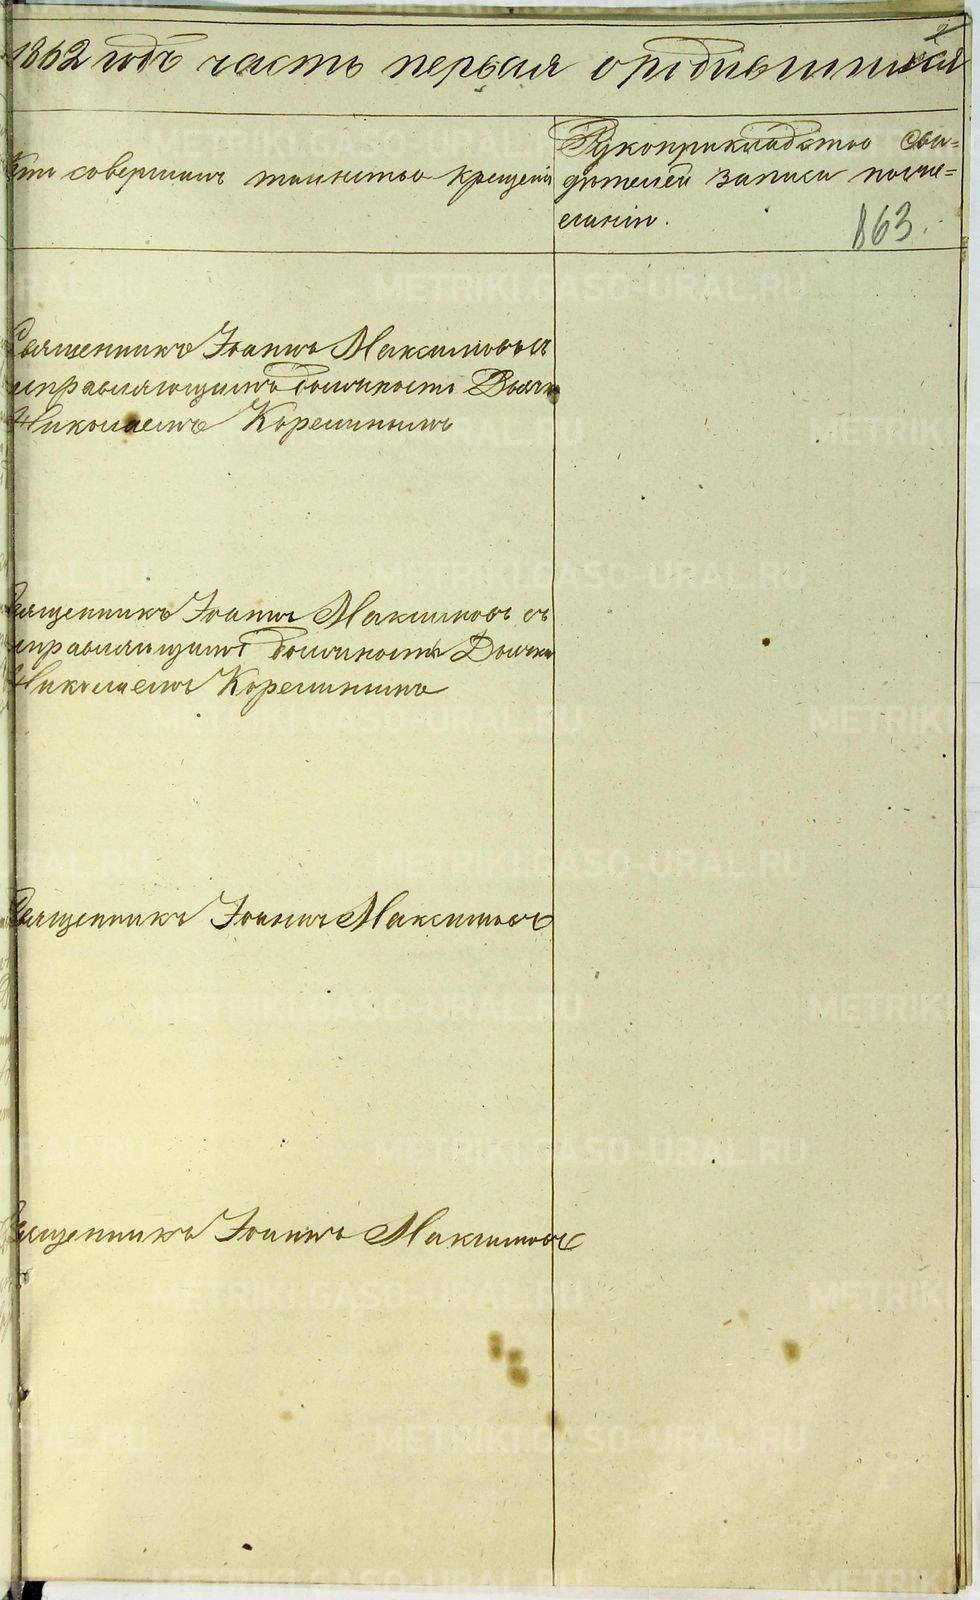 1862 годъ часть первая о родившихся
Кто совершалъ таинство крещенія
Рукоприкладство сви-
дѣтелей записи по же-
ланію.
863.
Священникъ Іоаннъ Максимовъ съ
исправляющимъ должность Дьячка
Николаемъ Корелинымъ
Священникъ Іоаннъ Максимовъ съ
исправляющимъ должность Дьячка
Николаемъ Корелинымъ
Священникъ Іоаннъ Максимовъ
Священникъ Іоаннъ Максимовъ
METRIKI.GASO-URAL.RU